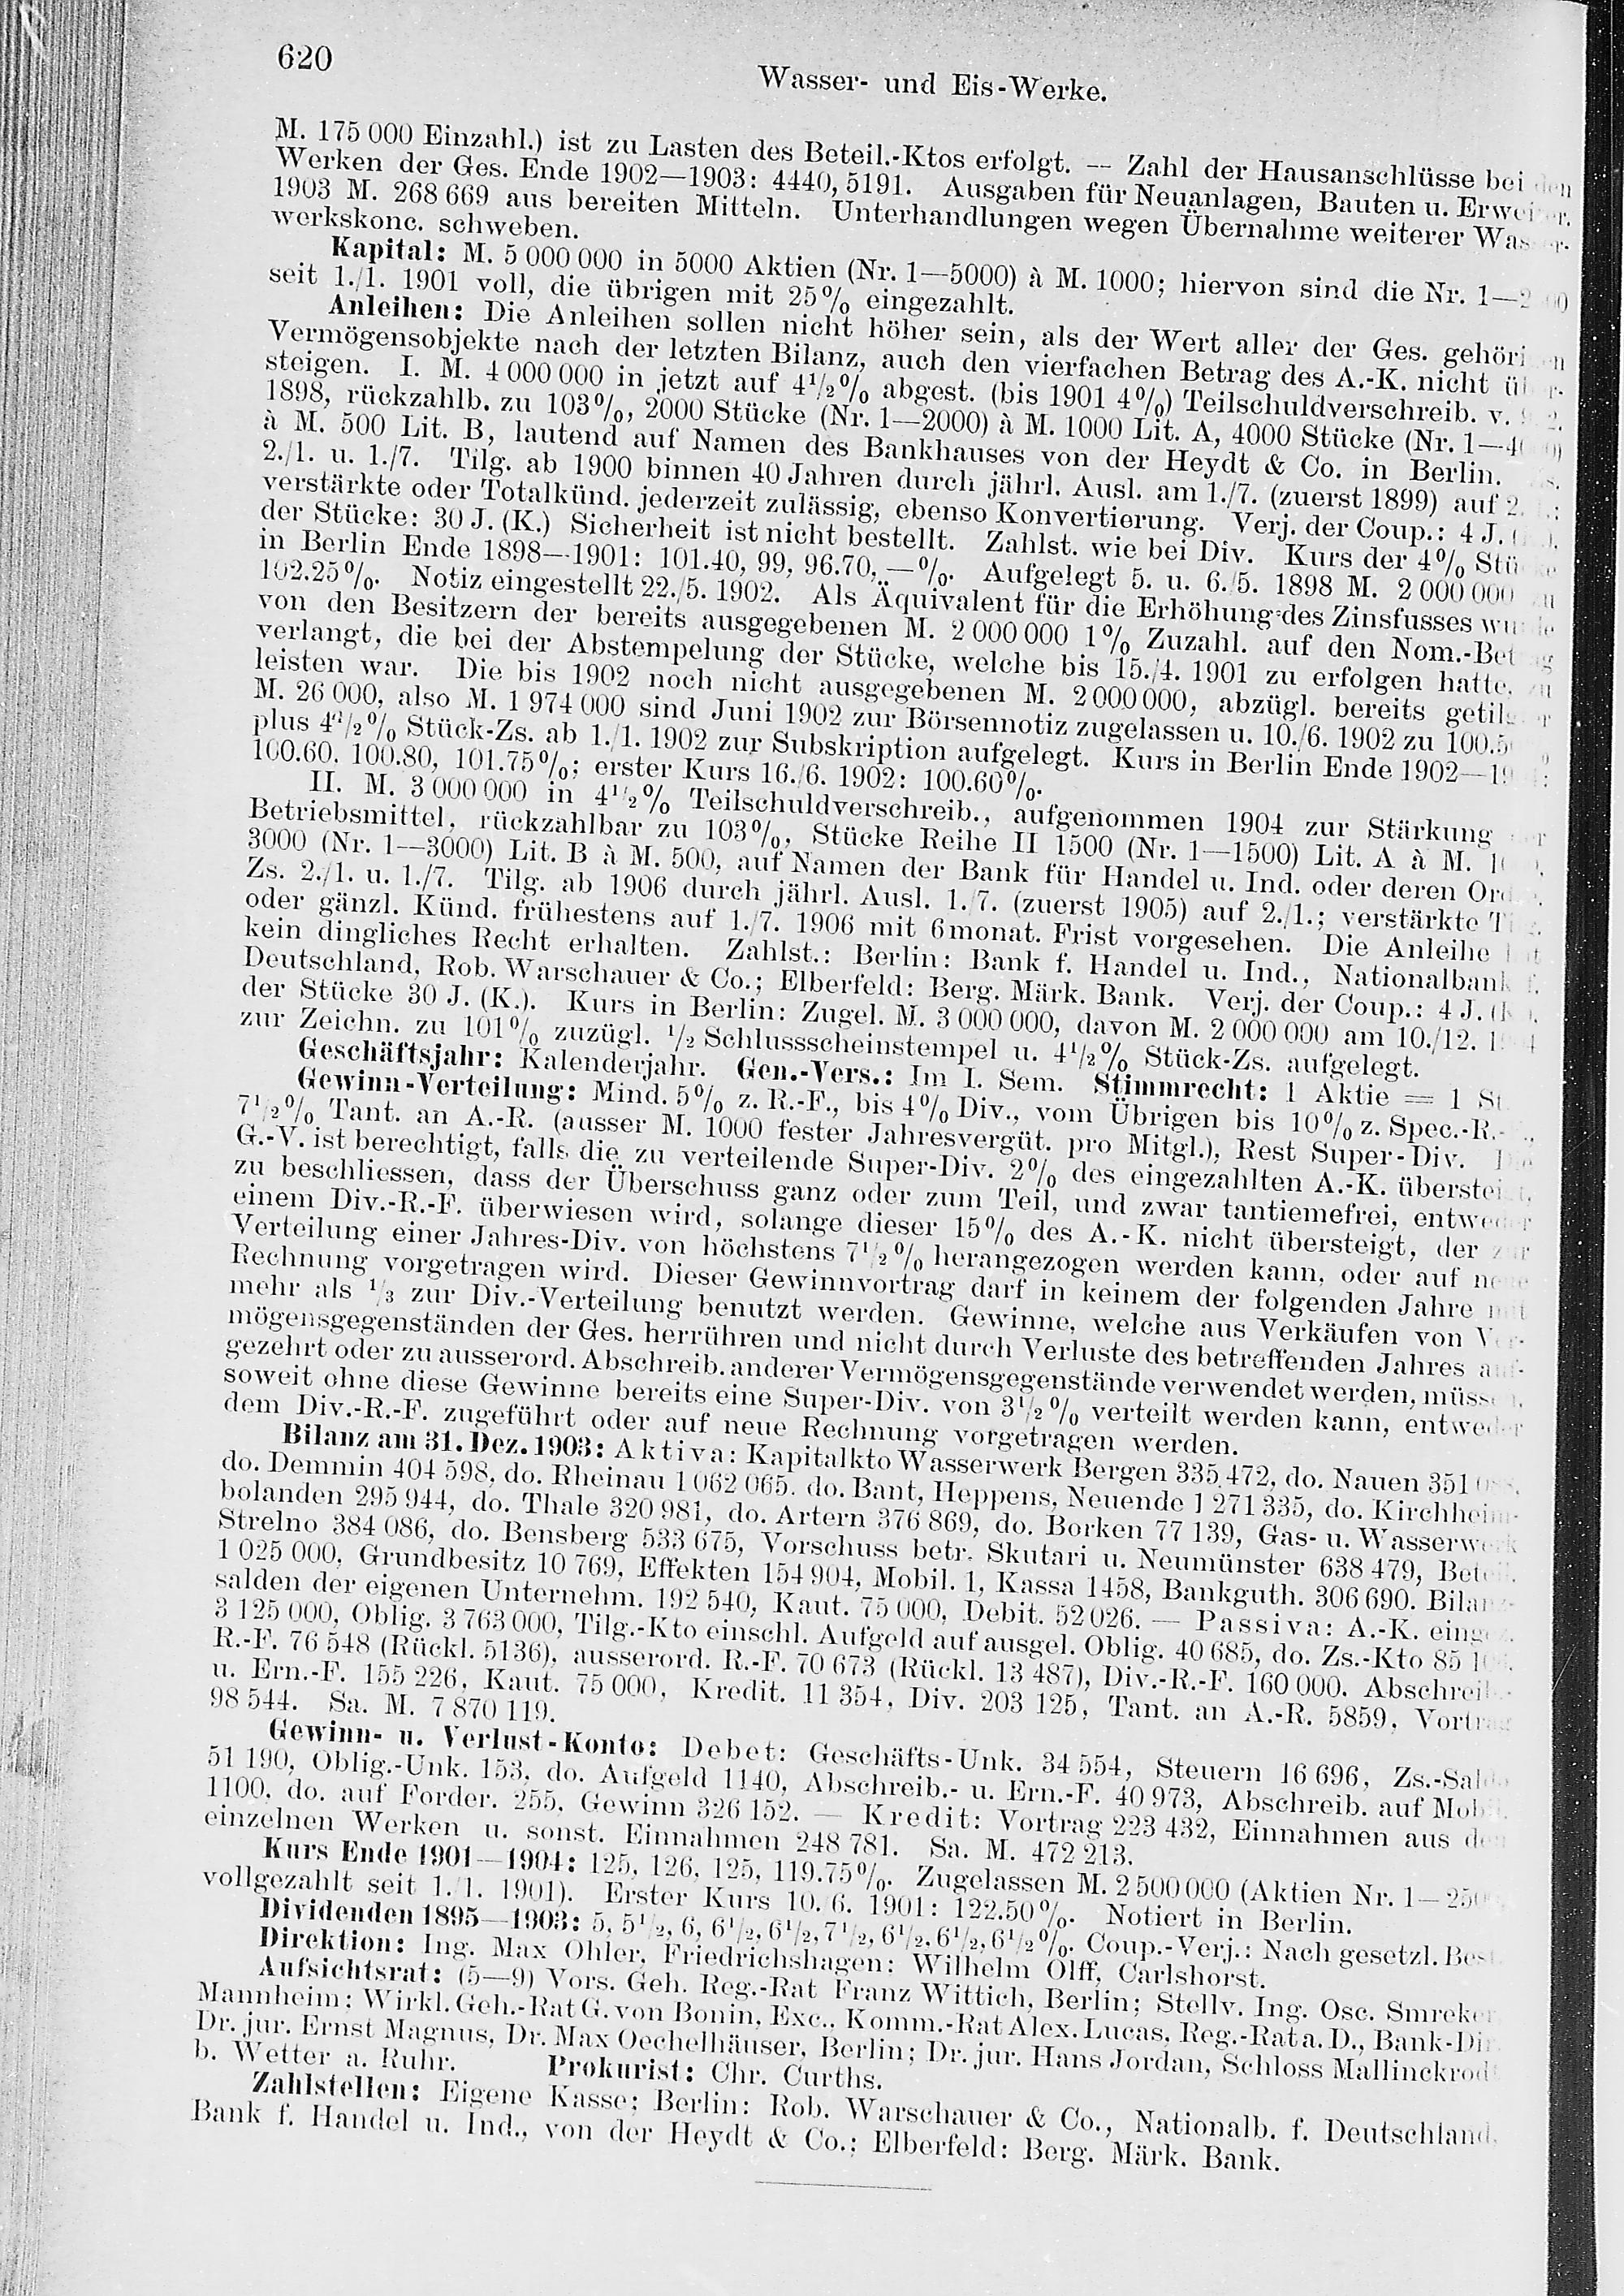 620
Wasser- und Eis-Werke.
M. 175 000 Einzahl.) ist zu Lasten des Beteil.-Ktos erfolgt. — Zahl der Hausanschlüsse bei den
Werken der Ges. Ende 1902—1903: 4440, 5191. Ausgaben für Neuanlagen, Bauten u. Erweiter.
1903 M. 268 669 aus bereiten Mitteln. Unterhandlungen wegen Übernahme weiterer Wasser-
werkskonc. schweben.
Kapital: M. 5 000 000 in 5000 Aktien (Nr. 1—5000) à M. 1000; hiervon sind die Nr. 1—2500
seit 1./1. 1901 voll, die übrigen mit 25% eingezahlt.
Anleihen: Die Anleihen sollen nicht höher sein, als der Wert aller der Ges. gehörigen
Vermögensobjekte nach der letzten Bilanz, auch den vierfachen Betrag des A.-K. nicht über-
steigen. I. M. 4 000 000 in jetzt auf 4½% abgest. (bis 1901 4%) Teilschuldverschreib. v.
1898, rückzahlb. zu 103%, 2000 Stücke (Nr. 1—2000) à M. 1000 Lit. A, 4000 Stücke (Nr. 1—4000)
à M. 500 Lit. B, lautend auf Namen des Bankhauses von der Heydt & Co. in Berlin. Zs.
2./1. u. 1./7. Tilg. ab 1900 binnen 40 Jahren durch jährl. Ausl. am 1./7. (zuerst 1899) auf 2./1.:
verstärkte oder Totalkünd. jederzeit zulässig, ebenso Konvertierung. Verj. der Coup.: 4 J. (K.),
der Stücke: 30 J. (K.) Sicherheit ist nicht bestellt. Zahlst. wie bei Div. Kurs der 4% Stücke
in Berlin Ende 1898—1901: 101.40, 99, 96.70, —%. Aufgelegt 5. u. 6./5. 1898 M. 2 000 000 zu
102.25%. Notiz eingestellt 22./5. 1902. Als Äquivalent für die Erhöhung des Zinsfusses wurde
von den Besitzern der bereits ausgegebenen M. 2 000 000 1% Zuzahl. auf den Nom.-Betrag
verlangt, die bei der Abstempelung der Stücke, welche bis 15./4. 1901 zu erfolgen hatte, zu
leisten war. Die bis 1902 noch nicht ausgegebenen M. 2 000 000, abzügl. bereits getilgter
M. 26 000, also M. 1 974 000 sind Juni 1902 zur Börsennotiz zugelassen u. 10./6. 1902 zu 100.50%
plus 4½% Stück-Zs. ab 1./1. 1902 zur Subskription aufgelegt. Kurs in Berlin Ende 1902—1904:
100.60. 100.80, 101.75%; erster Kurs 16./6. 1902: 100.60%.
II. M. 3 000 000 in 4½% Teilschuldverschreib., aufgenommen 1904 zur Stärkung der
Betriebsmittel, rückzahlbar zu 103%, Stücke Reihe II 1500 (Nr. 1—1500) Lit. A à M. 1000,
3000 (Nr. 1—3000) Lit. B à M. 500, auf Namen der Bank für Handel u. Ind. oder deren Order.
Zs. 2./1. u. 1./7. Tilg. ab 1906 durch jährl. Ausl. 1./7. (zuerst 1905) auf 2./1.; verstärkte Tilg.
oder gänzl. Künd. frühestens auf 1./7. 1906 mit 6monat. Frist vorgesehen. Die Anleihe hat
kein dingliches Recht erhalten. Zahlst.: Berlin: Bank f. Handel u. Ind., Nationalbank f.
Deutschland, Rob. Warschauer & Co.; Elberfeld: Berg. Märk. Bank. Verj. der Coup.: 4 J. (K.),
der Stücke 30 J. (K.). Kurs in Berlin: Zugel. M. 3 000 000, davon M. 2 000 000 am 10./12. 1904
zur Zeichn. zu 101% zuzügl. ½ Schlussscheinstempel u. 4½% Stück-Zs. aufgelegt.
Geschäftsjahr: Kalenderjahr. Gen.-Vers.: Im I. Sem. Stimmrecht: 1 Aktie = 1 St.
Gewinn-Verteilung: Mind. 5% z. R.-F., bis 4% Div., vom Übrigen bis 10% z. Spec.-R.-F.,
7½% Tant. an A.-R. (ausser M. 1000 fester Jahresvergüt. pro Mitgl.), Rest Super-Div. Die
G.-V. ist berechtigt, falls die zu verteilende Super-Div. 2% des eingezahlten A.-K. übersteigt,
zu beschliessen, dass der Überschuss ganz oder zum Teil, und zwar tantiemefrei, entweder
einem Div.-R.-F. überwiesen wird, solange dieser 15% des A.-K. nicht übersteigt, der zur
Verteilung einer Jahres-Div. von höchstens 7½% herangezogen werden kann, oder auf neue
Rechnung vorgetragen wird. Dieser Gewinnvortrag darf in keinem der folgenden Jahre mit
mehr als ⅓ zur Div.-Verteilung benutzt werden. Gewinne, welche aus Verkäufen von Ver-
mögensgegenständen der Ges. herrühren und nicht durch Verluste des betreffenden Jahres auf-
gezehrt oder zu ausserord. Abschreib. anderer Vermögensgegenstände verwendet werden, müssen,
soweit ohne diese Gewinne bereits eine Super-Div. von 3½% verteilt werden kann, entweder
dem Div.-R.-F. zugeführt oder auf neue Rechnung vorgetragen werden.
Bilanz am 31. Dez. 1903: Aktiva: Kapitalkto Wasserwerk Bergen 335 472, do. Nauen
do. Demmin 404 598, do. Rheinau 1 062 065, do. Bant, Heppens, Neuende 1 271 335, do. Kirchheim-
bolanden 295 944, do. Thale 320 981, do. Artern 376 869, do. Borken 77 139, Gas- u. Wasserwerk
Strelno 384 086, do. Bensberg 533 675, Vorschuss betr. Skutari u. Neumünster 638 479, Beteil.
1 025 000, Grundbesitz 10 769, Effekten 154 904, Mobil. 1, Kassa 1458, Bankguth. 306 690. Bilanz-
salden der eigenen Unternehm. 192 540, Kaut. 75 000, Debit. 52 026. — Passiva: A.-K. eingez.
3 125 000, Oblig. 3 763 000, Tilg.-Kto einschl. Aufgeld auf ausgel. Oblig. 40 685, do. Zs.-Kto
R.-F. 76 548 (Rückl. 5136), ausserord. R.-F. 70 673 (Rückl. 13 487), Div.-R.-F. 160 000. Abschreib.-
u. Ern.-F. 155 226, Kaut. 75 000, Kredit. 11 354, Div. 203 125, Tant. an A.-R. 5859, Vortrag
98 544. Sa. M. 7 870 119.
Gewinn- u. Verlust-Konto: Debet: Geschäfts-Unk. 34 554, Steuern 16 696, Zs.-Saldo
51 190, Oblig.-Unk. 153, do. Aufgeld 1140, Abschreib.- u. Ern.-F. 40 973, Abschreib. auf Mobil.
1100, do. auf Forder. 255, Gewinn 326 152. — Kredit: Vortrag 223 432, Einnahmen aus den
einzelnen Werken u. sonst. Einnahmen 248 781. Sa. M. 472 213.
Kurs Ende 1901—1904: 125, 126, 125, 119.75%. Zugelassen M. 2 500 000 (Aktien Nr. 1—2500,
vollgezahlt seit 1./1. 1901). Erster Kurs 10./6. 1901: 122.50%. Notiert in Berlin.
Dividenden 1895—1903: 5, 5½, 6, 6½, 6½, 7½, 6½, 6½, 6½%. Coup.-Verj.: Nach gesetzl. Best.
Direktion: Ing. Max Ohler, Friedrichshagen; Wilhelm Olff, Carlshorst.
Aufsichtsrat: (5—9) Vors. Geh. Reg.-Rat Franz Wittich, Berlin; Stellv. Ing. Osc. Smreker
Mannheim; Wirkl. Geh.-Rat G. von Bonin, Exc., Komm.-Rat Alex. Lucas, Reg.-Rat a. D., Bank-Dir.
Dr. jur. Ernst Magnus, Dr. Max Oechelhäuser, Berlin; Dr. jur. Hans Jordan, Schloss Mallinckrodt
b. Wetter a. Ruhr. Prokurist: Chr. Curths.
Zahlstellen: Eigene Kasse; Berlin: Rob. Warschauer & Co., Nationalb. f. Deutschland,
Bank f. Handel u. Ind., von der Heydt & Co.; Elberfeld: Berg. Märk. Bank.